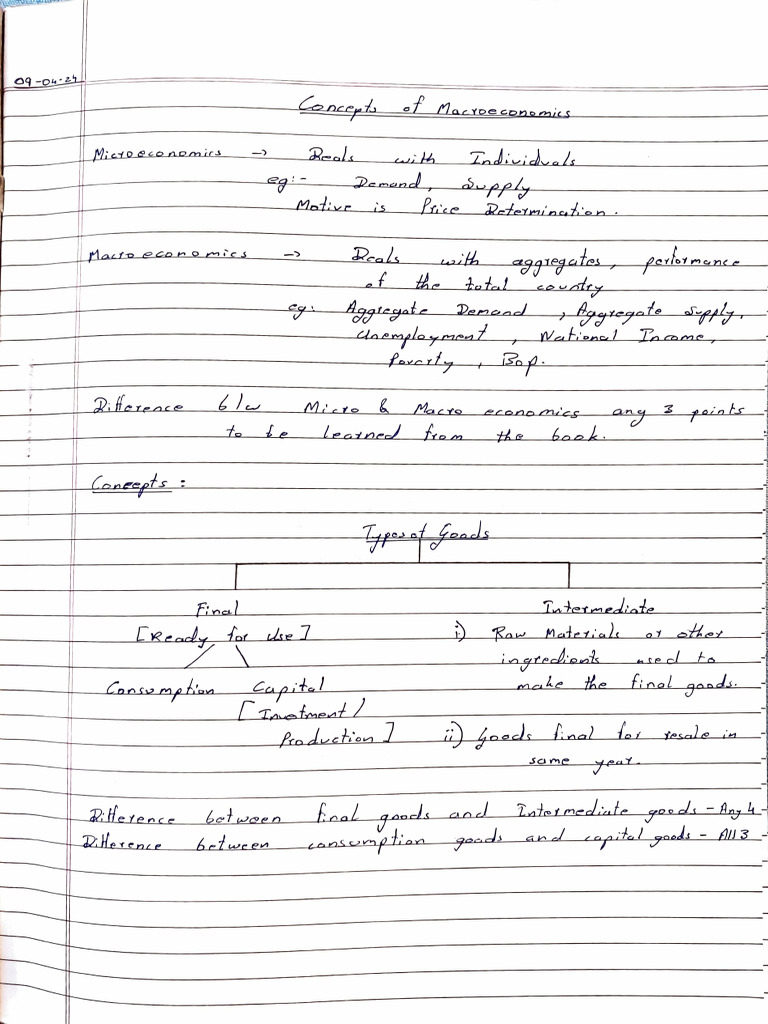 09-04-24
Concepts of Macroeconomics
Microeconomics → Deals with Individuals
eg:- Demand, Supply
Motive is Price Determination.
Macroeconomics → Deals with aggregates, performance
of the total country
eg: Aggregate Demand, Aggregate Supply,
Unemployment, National Income,
Poverty, Bop.
Difference b/w Micro & Macro economics any 3 points
to be learned from the book.
Concepts :
Types of Goods
Final Intermediate
[Ready for Use] i) Raw Materials or other
ingredients used to
Consumption Capital make the final goods.
[Investment/
Production] ii) Goods final for resale in
same year.
Difference between final goods and Intermediate goods - Any 4
Difference between consumption goods and capital goods - All 3